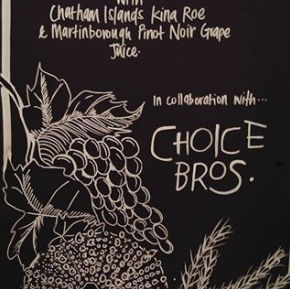 with
Chatham Islands Kina Roe
& Martinborough Pinot Noir Grape
Juice.
In collaboration with...
CHOICE
BROS.